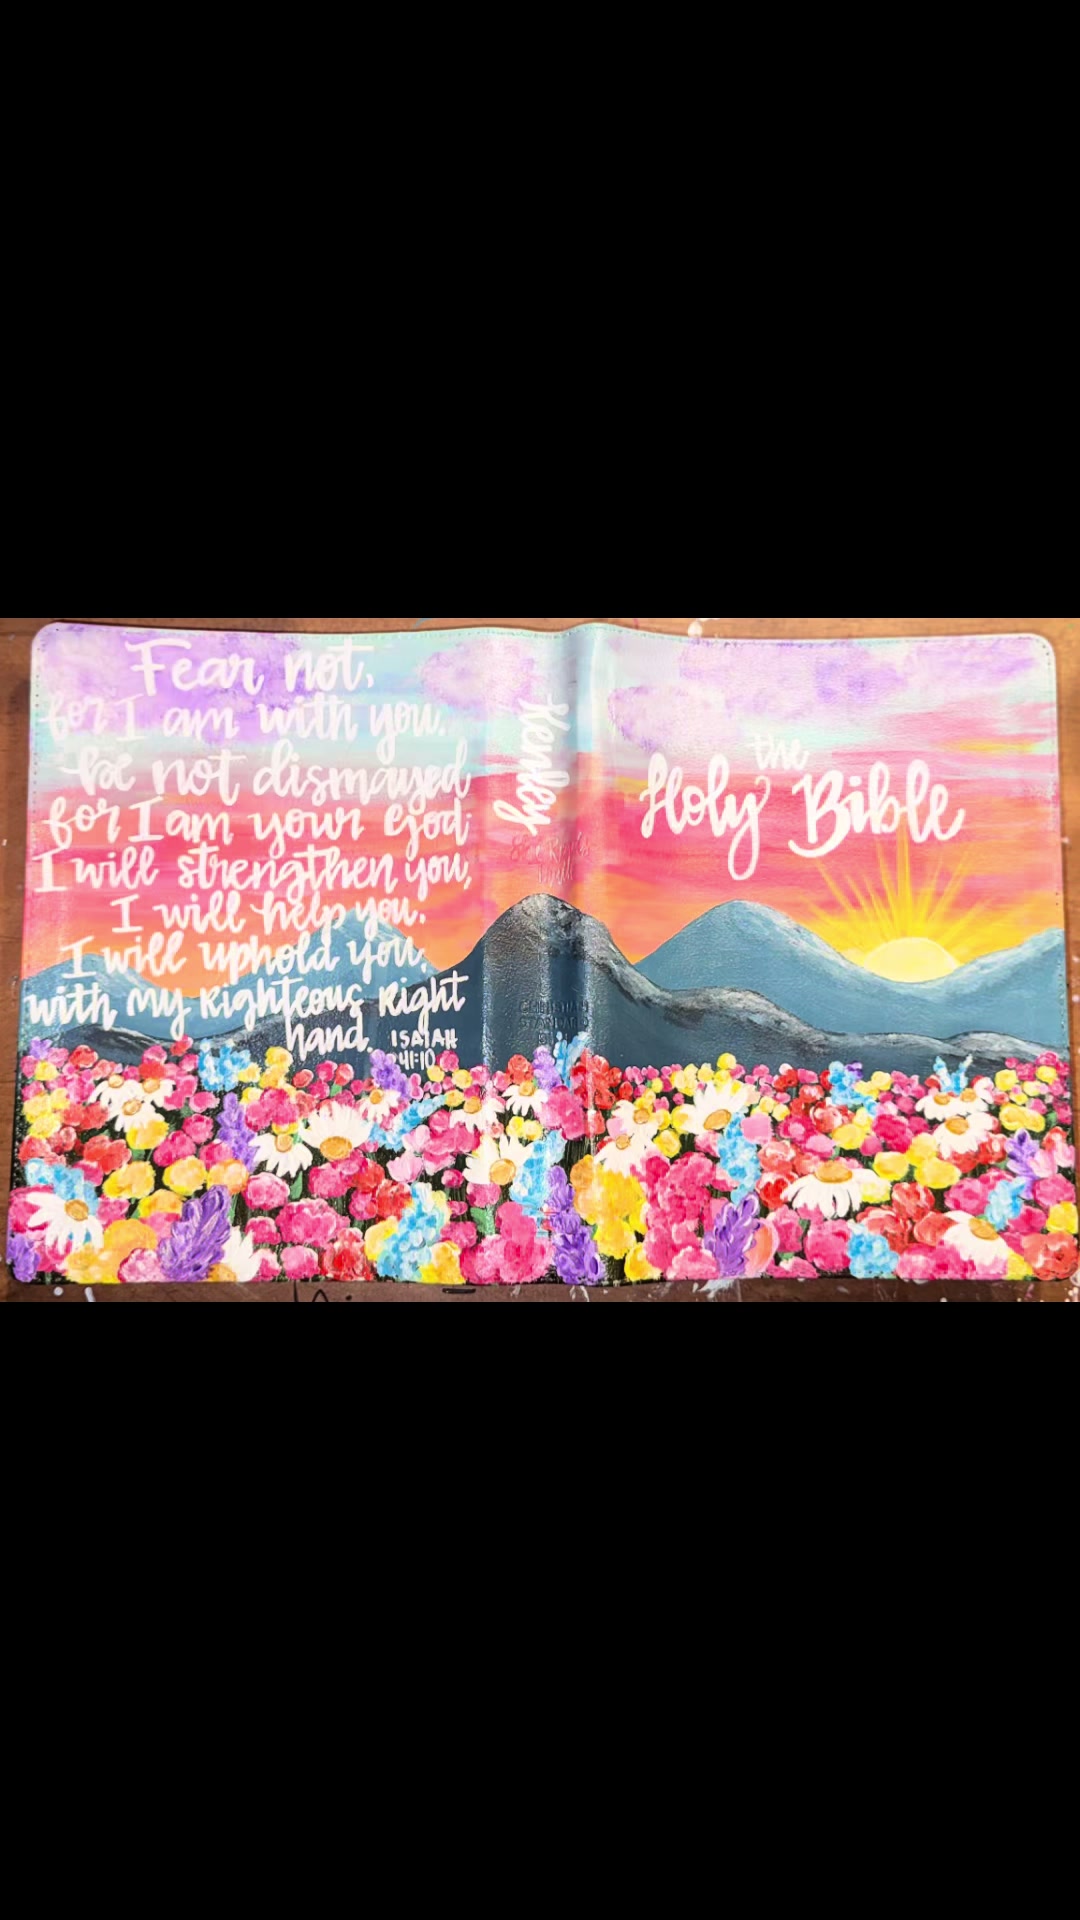 Fear not,
for I am with you.
be not dismayed
for I am your God.
I will strengthen you,
I will help you.
I will uphold you.
with my Righteous Right
hand. ISAIAH
41:10
Kenley
the
Holy Bible
CHRISTIAN
STANDARD